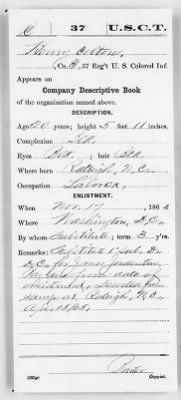 C 37 U.S.C.T.
Henry Cotton
Co. B, 37 Reg't U. S. Colored Inf.
Appears on
Company Descriptive Book
of the organization named above.
DESCRIPTION.
Age 20 years; height 5 feet 11 inches.
Complexion Blk.
Eyes Blk. ; hair Blk
Where born Raleigh, N.C.
Occupation Laborer
ENLISTMENT.
When Nov. 17, 186
Where Washington, D.C.
By whom Substitute; term 3 y'rs.
Remarks: Substitute
D.C. for
from date of
enlistment. Deserted from
camp at Raleigh, N.C.
Copyist.